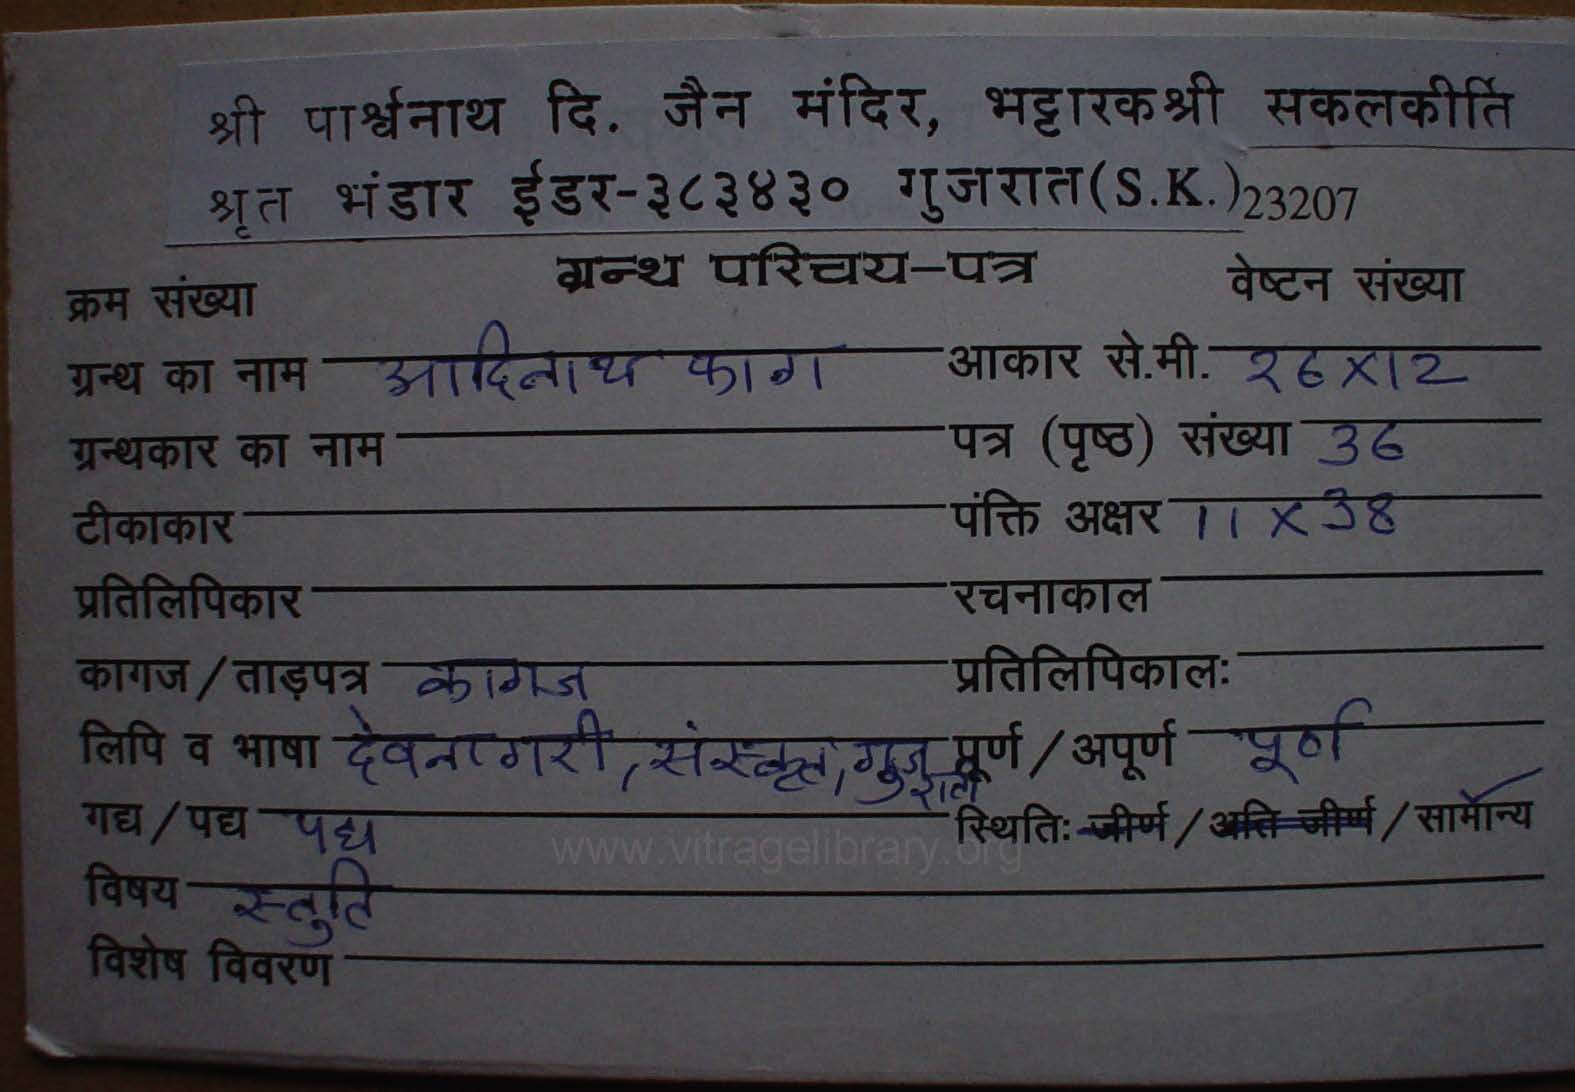 श्री पार्श्वनाथ दि. जैन मंदिर, भट्टारकश्री सकलकीर्ति
श्रृत भंडार ईडर-३८३४३० गुजरात(S.K.) 23207
ग्रन्थ परिचय-पत्र
क्रम संख्या वेष्टन संख्या
ग्रन्थ का नाम आदिनाथ फाग आकार से.मी. 26X12
ग्रन्थकार का नाम पत्र (पृष्ठ) संख्या 36
टीकाकार पंक्ति अक्षर 11 X 38
प्रतिलिपिकार रचनाकाल
कागज/ताड़पत्र कागज प्रतिलिपिकाल:
लिपि व भाषा देवनागरी, संस्कृत, गुजराती पूर्ण/अपूर्ण पूर्ण
गद्य/पद्य पद्य स्थिति: जीर्ण/अति जीर्ण/सामान्य
www.vitragelibrary.org
विषय स्तुति
विशेष विवरण